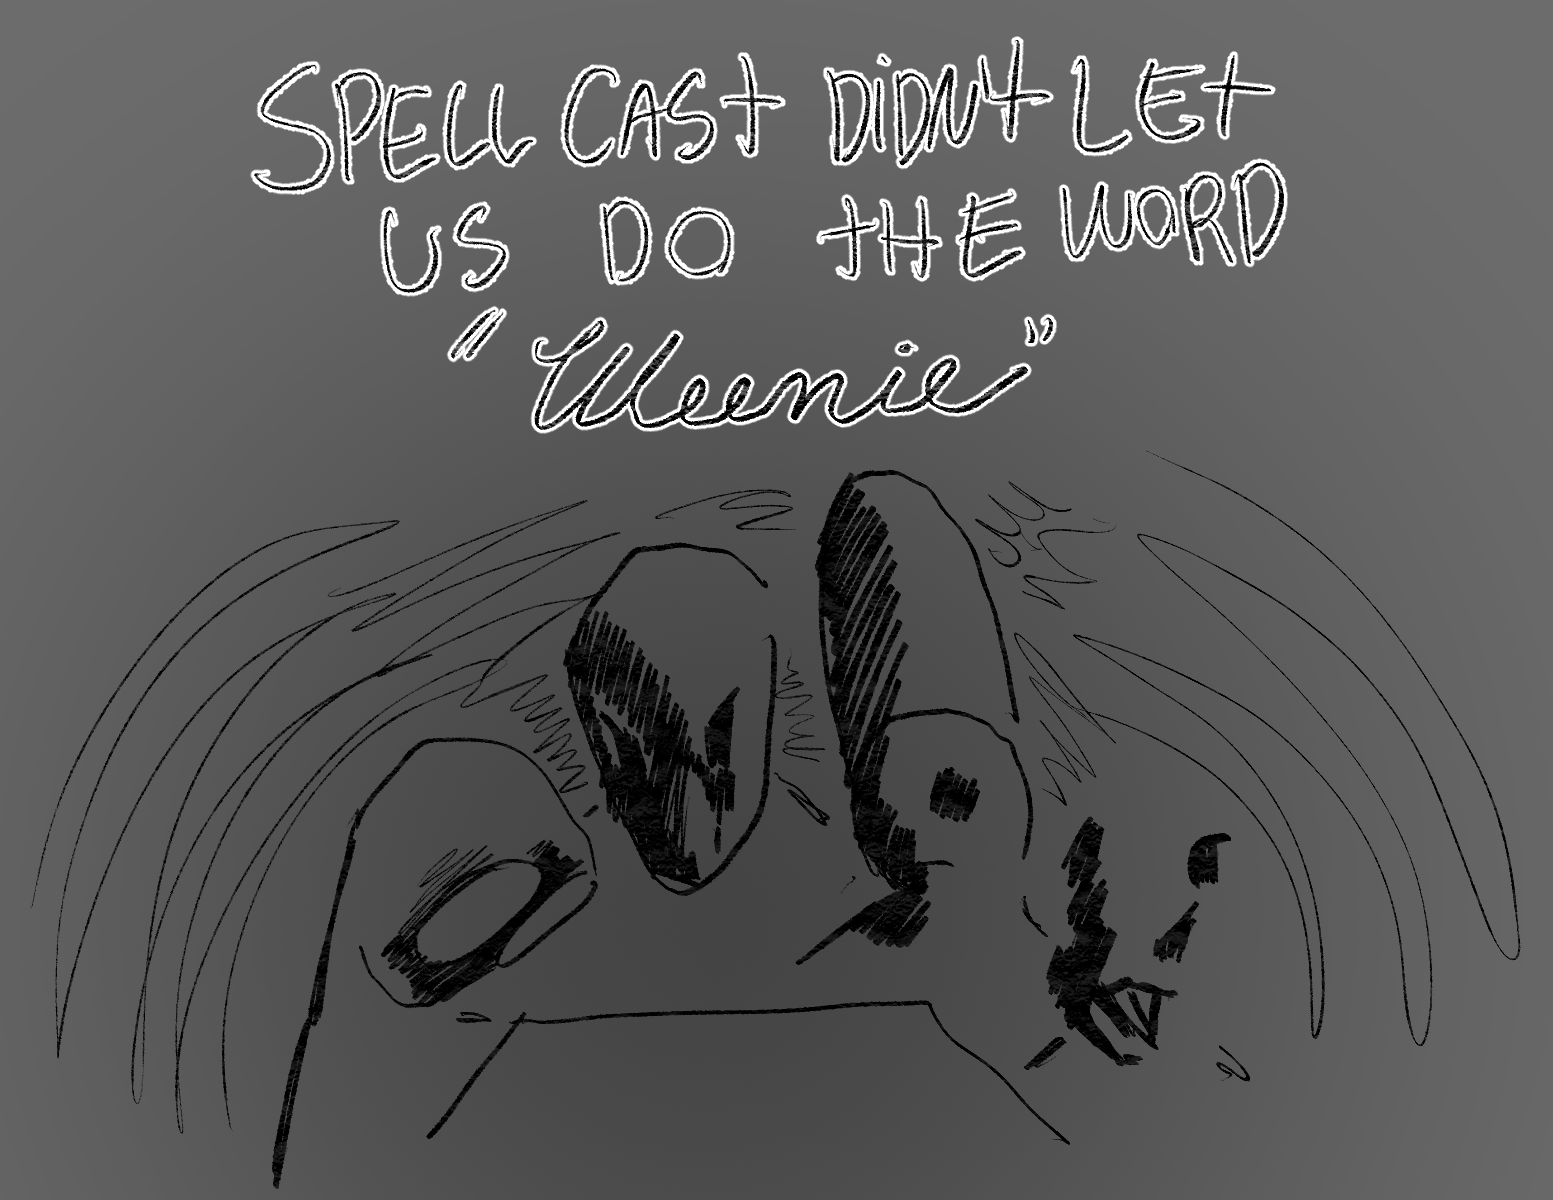 SPELL CAST DiDN't LEt
US DO tHE WORD
"Weenie"